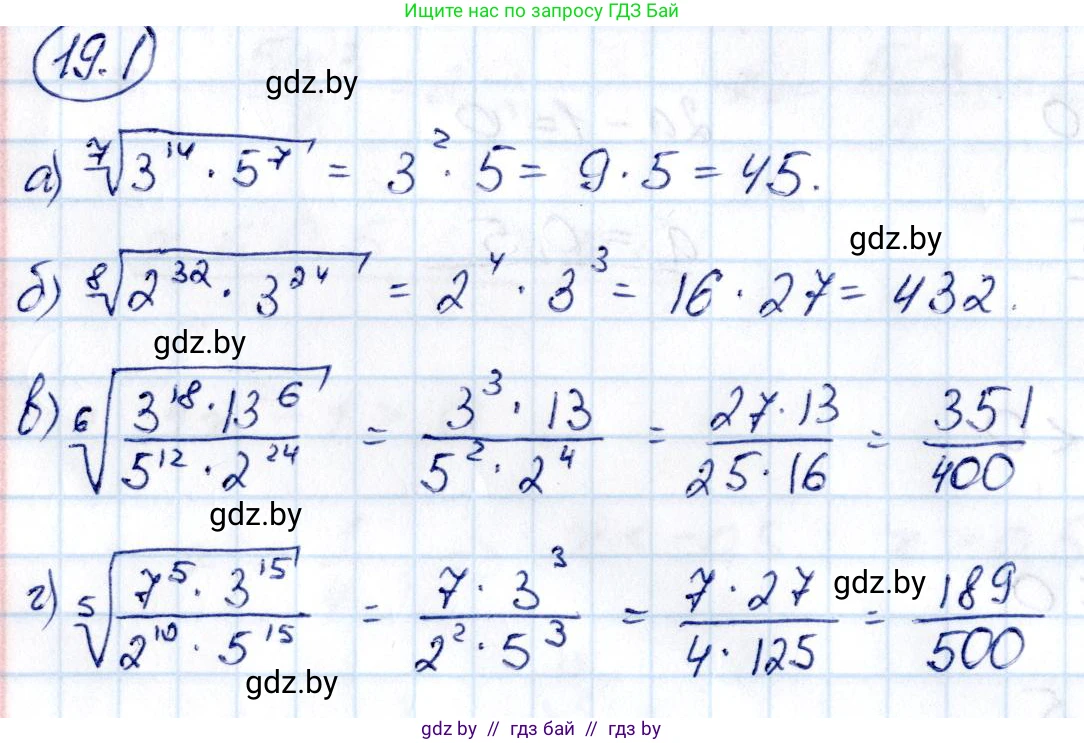 Ищите нас по запросу ГДЗ Бай
19.1
gdz.by
а) ⁷√(3¹⁴ · 5⁷) = 3² · 5 = 9 · 5 = 45.
gdz.by
б) ⁸√(2³² · 3²⁴) = 2⁴ · 3³ = 16 · 27 = 432.
gdz.by
в) ⁶√((3¹⁸ · 13⁶)/(5¹² · 2²⁴)) = (3³ · 13)/(5² · 2⁴) = (27 · 13)/(25 · 16) = 351/400
gdz.by
г) ⁵√((7⁵ · 3¹⁵)/(2¹⁰ · 5¹⁵)) = (7 · 3³)/(2² · 5³) = (7 · 27)/(4 · 125) = 189/500
gdz.by
gdz.by
gdz.by // гдз бай // гдз by